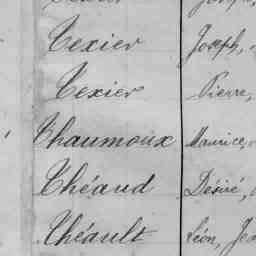 Texier Joseph,
Texier Pierre,
Thaumoux Maurice,
Théaud Désiré,
Théault Léon, Jea